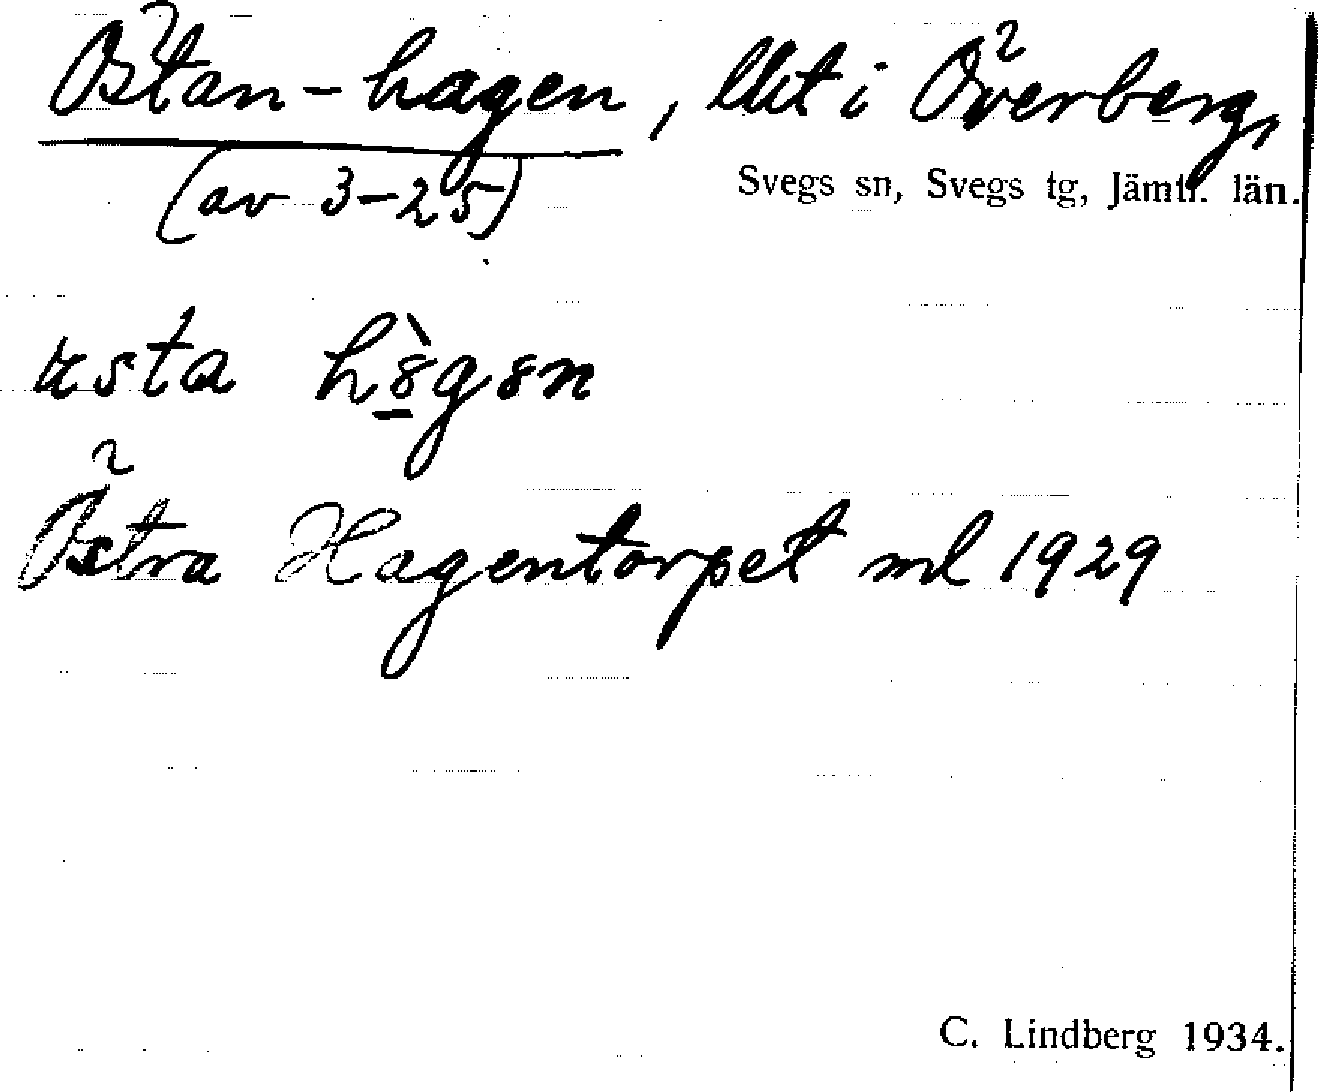 Östan-hagen, llt i Överberg,
Svegs sn, Svegs tg, Jämtl. län.
(av 3-25)
Östra Hagentorpet ml 1929
C. Lindberg 1934.